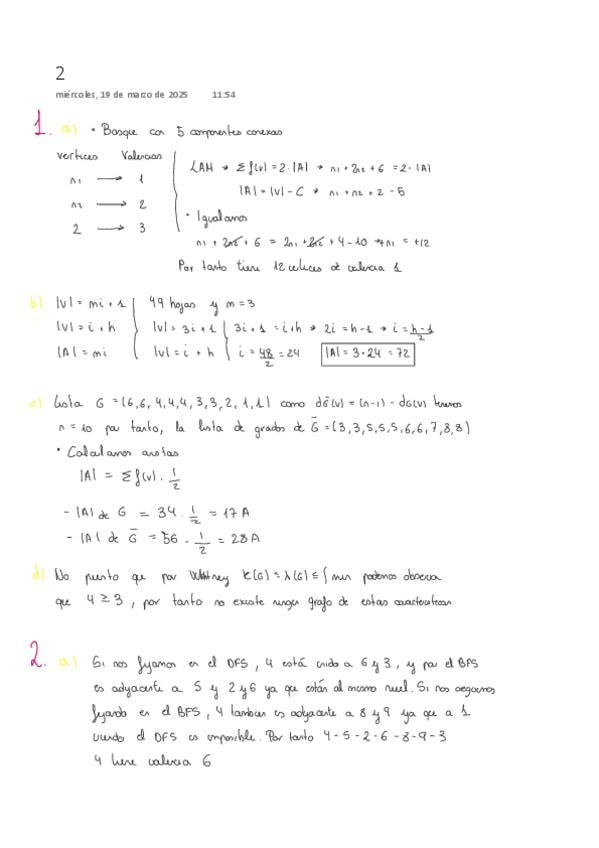 2
miércoles, 19 de marzo de 2025 11:54
1. a) • Bosque con 5 componentes conexas
vertices Valencias
n₁ → 1
n₂ → 2
2 → 3
LAM → Σ f(v) = 2·|A| → n₁ + 2n₂ + 6 = 2·|A|
|A| = |V| - C → n₁ + n₂ + 2 - 5
• Igualamos
n₁ + 2n₂ + 6 = 2n₁ + 2n₂ + 4 - 10 → +n₁ = +12
Por tanto tiene 12 vertices de valencia 1
b) |V| = mi + 1
|V| = i + h
|A| = mi
49 hojas y m = 3
|V| = 3i + 1
|V| = i + h
3i + 1 = i + h → 2i = h - 1 → i = h-1/2
i = 48/2 = 24
|A| = 3 · 24 = 72
c) Lista G = (6,6,4,4,4,3,3,2,1,1) como dḠ(v) = (n-1) - dG(v) tenemos
n = 10 por tanto, la lista de grados de Ḡ = (3,3,5,5,5,6,6,7,8,8)
• Calculamos aristas
|A| = Σ f(v) · 1/2
- |A| de G = 34 · 1/2 = 17 A
- |A| de Ḡ = 56 · 1/2 = 28 A
d) No puesto que por Whitney K(G) = λ(G) ≤ δ min podemos observar
que 4 ≥ 3, por tanto no existe ningun grafo de estas caracteristicas
2. a) Si nos fijamos en el DFS, 4 está unido a 6 y 3, y por el BFS
es adyacente a 5 y 2 y 6 ya que están al mismo nivel. Si nos seguimos
fijando en el BFS, 4 tambien es adyacente a 8 y 9 ya que a 1
viendo el DFS es imposible. Por tanto 4-5-2-6-8-9-3
4 tiene valencia 6